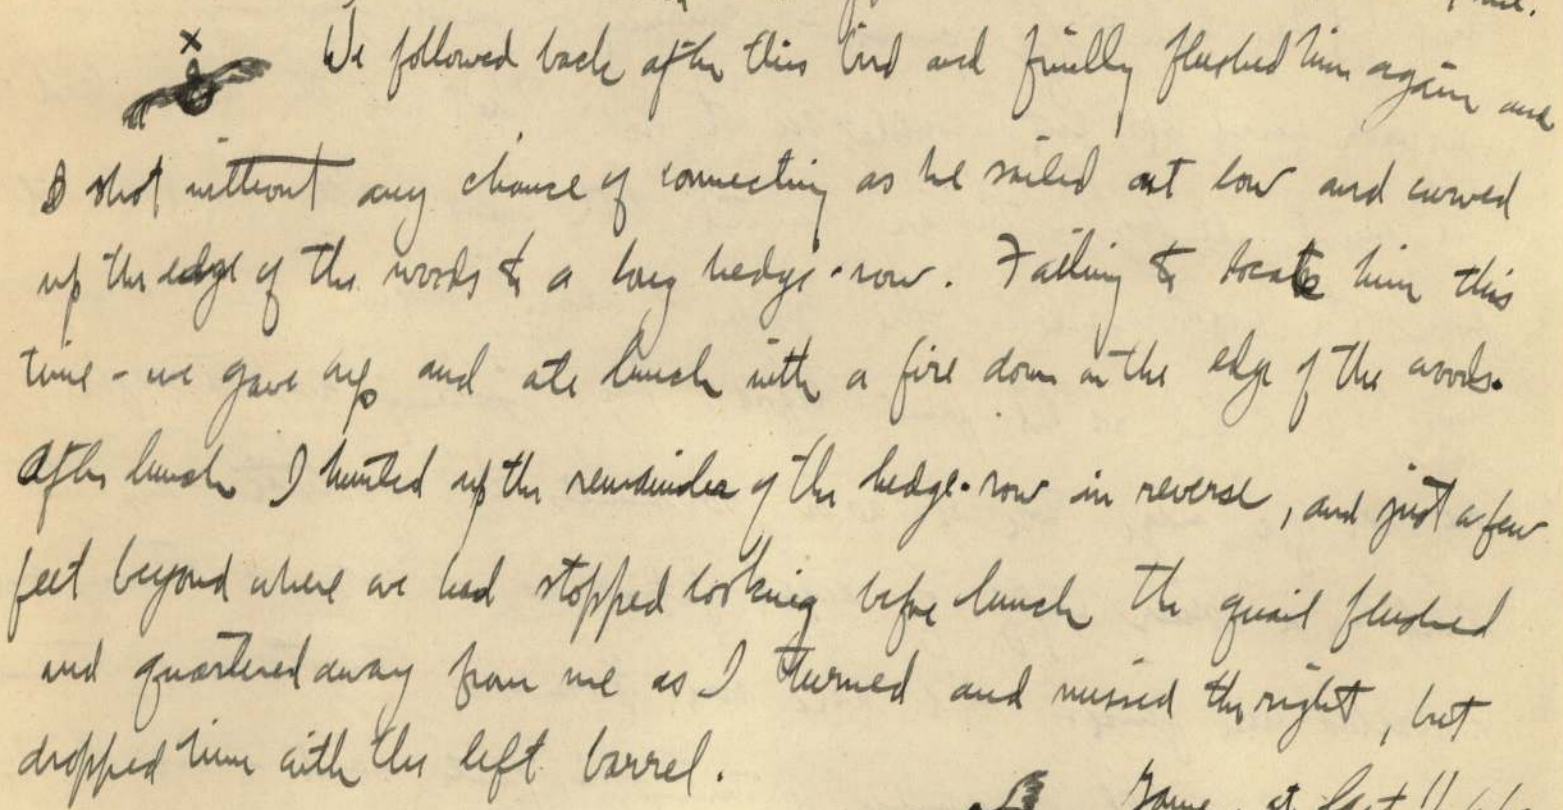 x We followed back after this bird and finally flushed him again and
I shot without any chance of connecting as he sailed out low and curved
up the edge of the woods to a long hedge-row. Failing to locate him this
time - we gave up and ate lunch with a fire down on the edge of the woods.
After lunch I hunted up the remainder of the hedge-row in reverse, and just a few
feet beyond where we had stopped looking before lunch the quail flushed
and quartered away from me as I turned and missed the right, but
dropped him with the left barrel.
at last!!